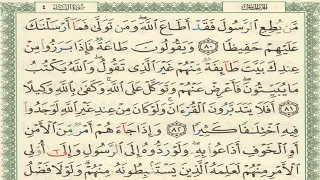 سورة النساء ٤
مَّن يُطِعِ ٱلرَّسُولَ فَقَدْ أَطَاعَ ٱللَّهَ وَمَن تَوَلَّىٰ فَمَآ أَرْسَلْنَٰكَ
عَلَيْهِمْ حَفِيظًا ٨٠ وَيَقُولُونَ طَاعَةٌ فَإِذَا بَرَزُوا۟ مِنْ
عِندِكَ بَيَّتَ طَآئِفَةٌ مِّنْهُمْ غَيْرَ ٱلَّذِى تَقُولُ وَٱللَّهُ يَكْتُبُ
مَا يُبَيِّتُونَ فَأَعْرِضْ عَنْهُمْ وَتَوَكَّلْ عَلَى ٱللَّهِ وَكَفَىٰ بِٱللَّهِ وَكِيلًا
٨١ أَفَلَا يَتَدَبَّرُونَ ٱلْقُرْءَانَ وَلَوْ كَانَ مِنْ عِندِ غَيْرِ ٱللَّهِ لَوَجَدُوا۟
فِيهِ ٱخْتِلَٰفًا كَثِيرًا ٨٢ وَإِذَا جَآءَهُمْ أَمْرٌ مِّنَ ٱلْأَمْنِ
أَوِ ٱلْخَوْفِ أَذَاعُوا۟ بِهِۦ وَلَوْ رَدُّوهُ إِلَى ٱلرَّسُولِ وَإِلَىٰٓ أُو۟لِى
ٱلْأَمْرِ مِنْهُمْ لَعَلِمَهُ ٱلَّذِينَ يَسْتَنۢبِطُونَهُۥ مِنْهُمْ وَلَوْلَا فَضْلُ